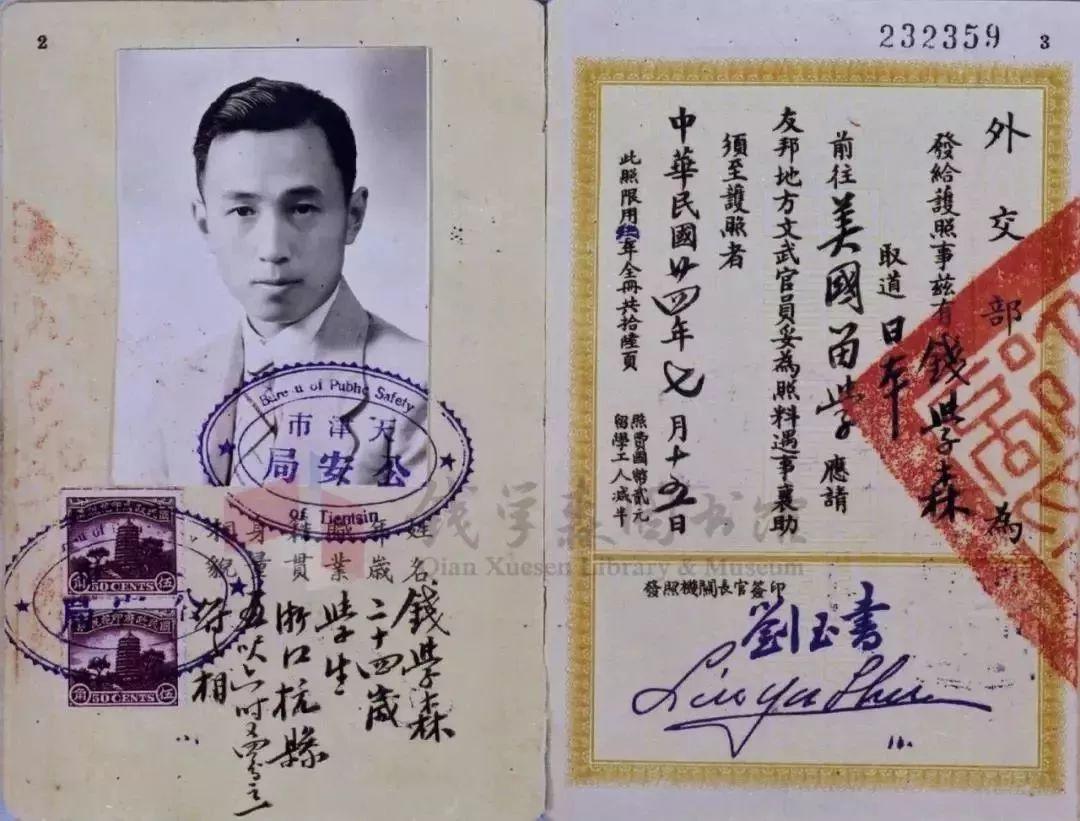 2
Bureau of Public Safety
天津市
公安局
of Tientsin
伍角
50 CENTS
伍角
50 CENTS
姓名 錢學森
年歲 二十四歲
職業 學生
籍貫 浙江杭縣
身量 五呎六吋又四分之一
相貌 附相
钱学森图书馆
Qian Xuesen Library & Museum
232359
3
外交部為
發給護照事茲有錢學森
取道日本
前往美國留學應請
友邦地方文武官員妥為照料遇事襄助
須至護照者
中華民國廿四年七月十五日
此照限用叁年全冊共拾陸頁
照費國幣貳元
留學工人減半
發照機關長官簽印
劉玉書
Liu Yu Shu